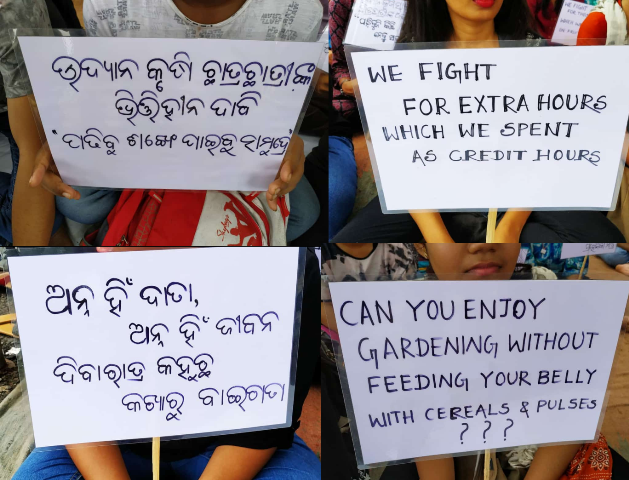 ଉଦ୍ୟାନ କୃଷି ଛାତ୍ରଛାତ୍ରୀଙ୍କ
ଭିତ୍ତିହୀନ ଦାବି
"ପଢିବୁ ଶଙ୍ଖେ ପାଇବୁ ସମୁଦ୍ରେ"
WE FIGHT
FOR EXTRA HOURS
WHICH WE SPENT
AS CREDIT HOURS
ଅନ୍ନ ହିଁ ଦାତା,
ଅନ୍ନ ହିଁ ଜୀବନ
ଦିବାରାତ୍ର କହୁଛି
କଖାରୁ ବାଇଗଣ
CAN YOU ENJOY
GARDENING WITHOUT
FEEDING YOUR BELLY
WITH CEREALS & PULSES
? ? ?